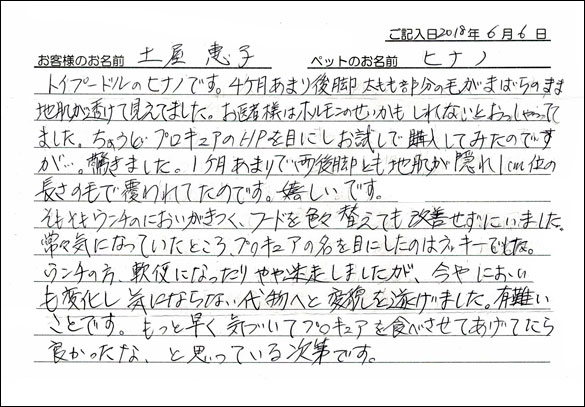 ご記入日2018年6月6日
お客様のお名前 土屋 恵子 ペットのお名前 ヒナノ
トイプードルのヒナノです。4ケ月あまり後脚太もも部分の毛がまばらのまま
地肌が透けて見えてました。お医者様はホルモンのせいかもしれないとおっしゃって
ました。ちょうど プロキュアのHPを目にしお試しで購入してみたのです
が…。驚きました。1ケ月あまりで両後脚とも地肌が隠れ1cm位の
長さの毛で覆われてたのです。嬉しいです。
そもそもウンチのにおいがきつく、フードを色々替えても改善せずにいました。
常々気になっていたところ、プロキュアの名を目にしたのはラッキーでした。
ウンチの方、軟便になったりやや迷走しましたが、今やにおい
も変化し気にならない代物へと変貌を遂げました。有難い
ことです。もっと早く気づいてプロキュアを食べさせてあげてたら
良かったな、と思っている次第です。